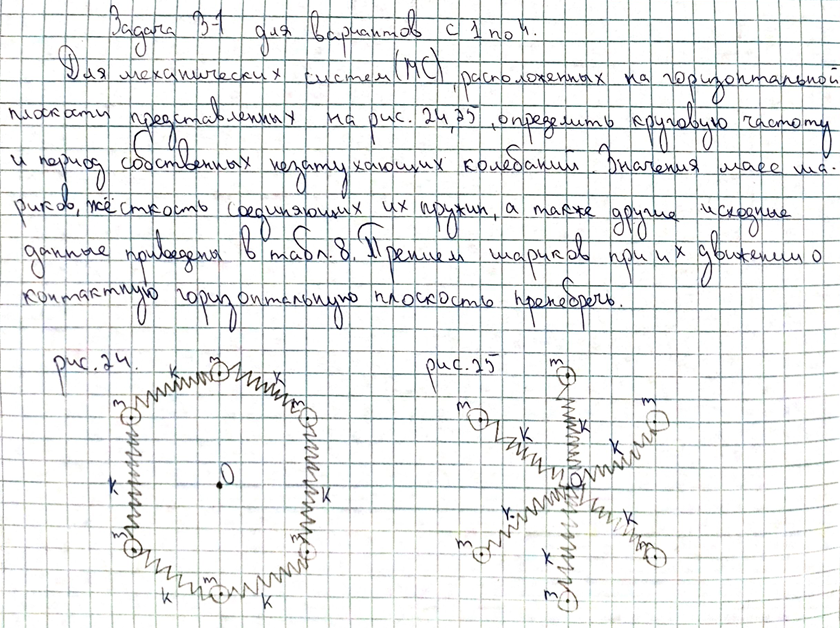 Задача 3-1 для вариантов с 1 по 4.
Для механических систем (МС), расположенных на горизонтальной
плоскости представленных на рис. 24,25, определить круговую частоту
и период собственных незатухающих колебаний. Значения масс ша-
риков, жёсткость соединяющих их пружин, а также другие исходные
данные приведены в табл. 8. Трением шариков при их движении о
контактную горизонтальную плоскость пренебречь.
рис. 24.
рис. 25
m
m
m
m
m
m
K
K
K
K
K
K
O
m
m
m
m
m
m
K
K
K
K
K
K
O